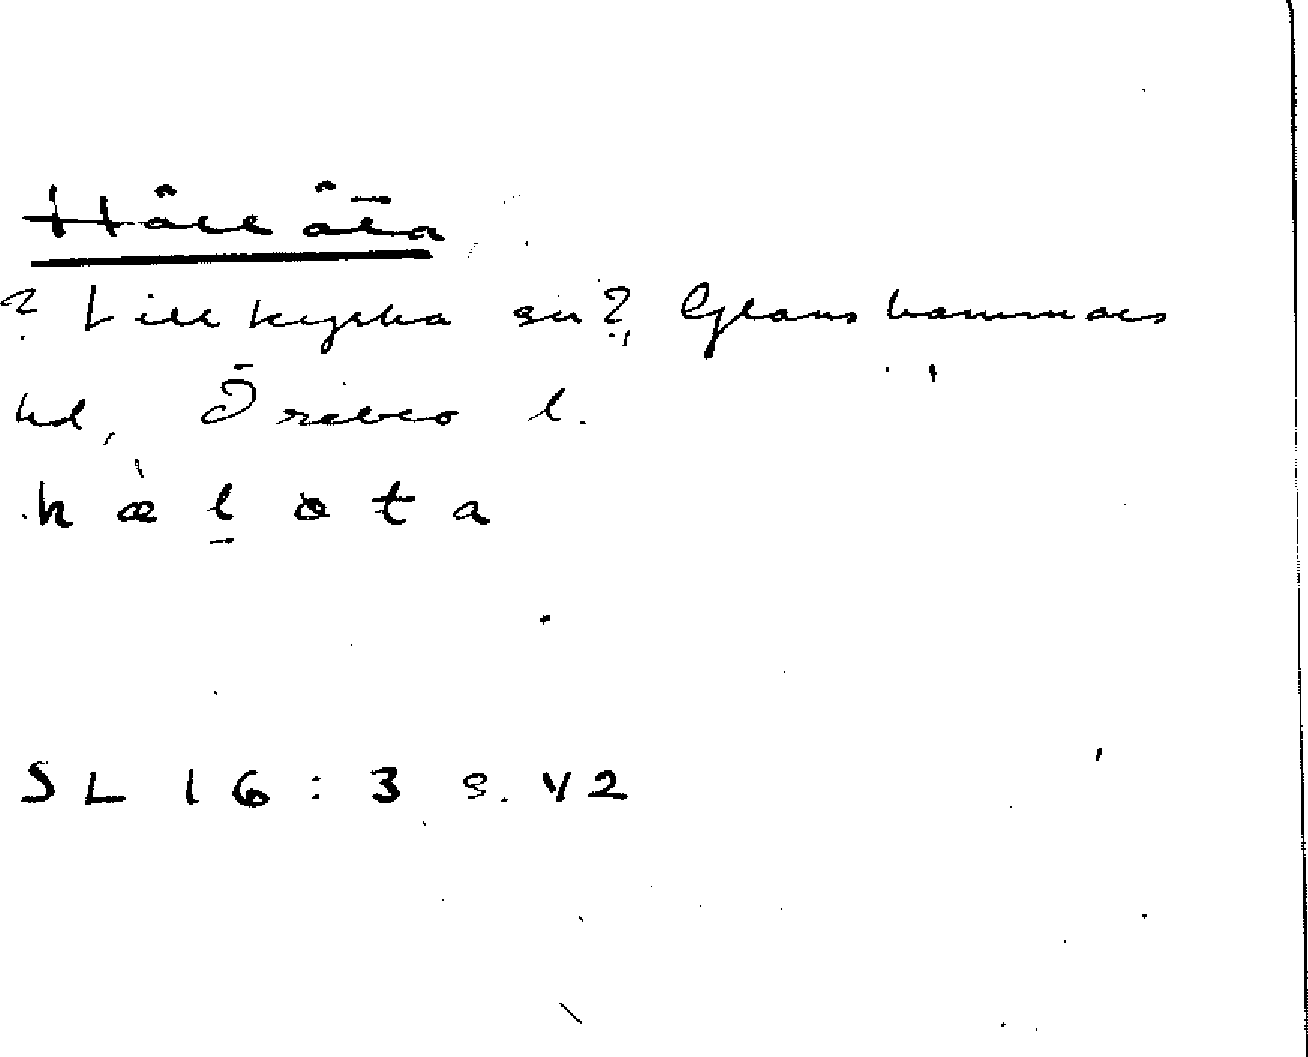 Hållåta
? Lillkyrka sn?, Glanshammars
hd, Örebro l.
h æ l ə t a
SL 16:3 s. V2